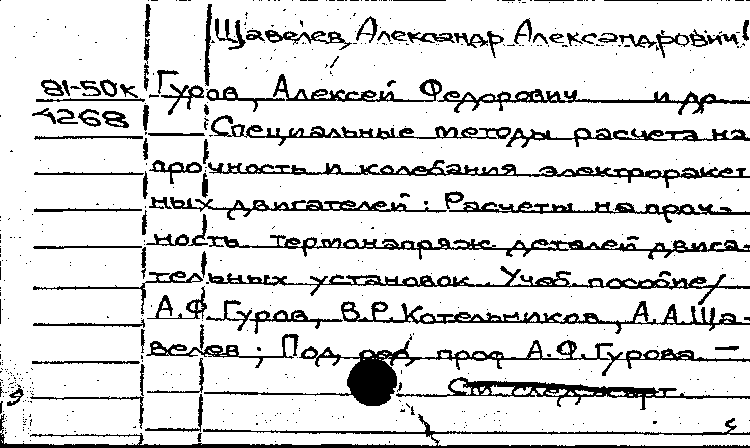 Щавелев, Александр Александрович
81-50к Гуров, Алексей Федорович и др
4268 Специальные методы расчета на
прочность и колебания электроракет
ных двигателей: Расчеты на проч-
ность термонапряж деталей двига-
тельных установок. Учеб. пособие/
А.Ф. Гуров, В.Р. Котельников, А.А. Ща-
велев; Под ред. проф А.Ф. Гурова. —
См. след. карт.